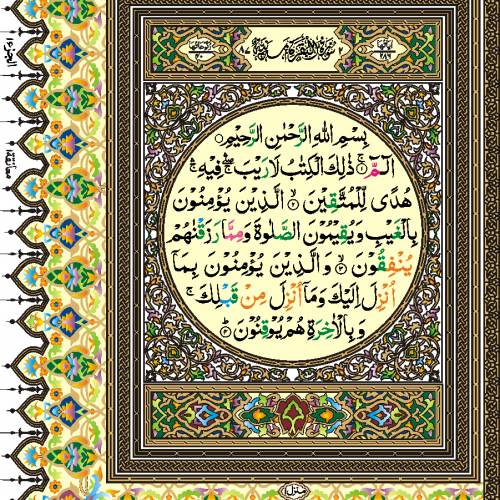 سُوْرَةُ الْبَقَرَةِ مَدَنِيَّةٌ
٢
٨٧
اٰیاتها
٢٨٦
رکوعاتها
بِسْمِ اللّٰهِ الرَّحْمٰنِ الرَّحِيْمِ
الٓمّٓ ۚ ذٰلِكَ الْكِتٰبُ لَا رَيْبَ ۛۖ فِيْهِ ۛۚ
هُدًى لِّلْمُتَّقِيْنَ ۙ الَّذِيْنَ يُؤْمِنُوْنَ
بِالْغَيْبِ وَيُقِيْمُوْنَ الصَّلٰوةَ وَمِمَّا رَزَقْنٰهُمْ
يُنْفِقُوْنَ ۙ وَالَّذِيْنَ يُؤْمِنُوْنَ بِمَاۤ
اُنْزِلَ اِلَيْكَ وَمَاۤ اُنْزِلَ مِنْ قَبْلِكَ ۚ
وَبِالْاٰخِرَةِ هُمْ يُوْقِنُوْنَ ۗ
الجزء ١
معانقة
منزل ١